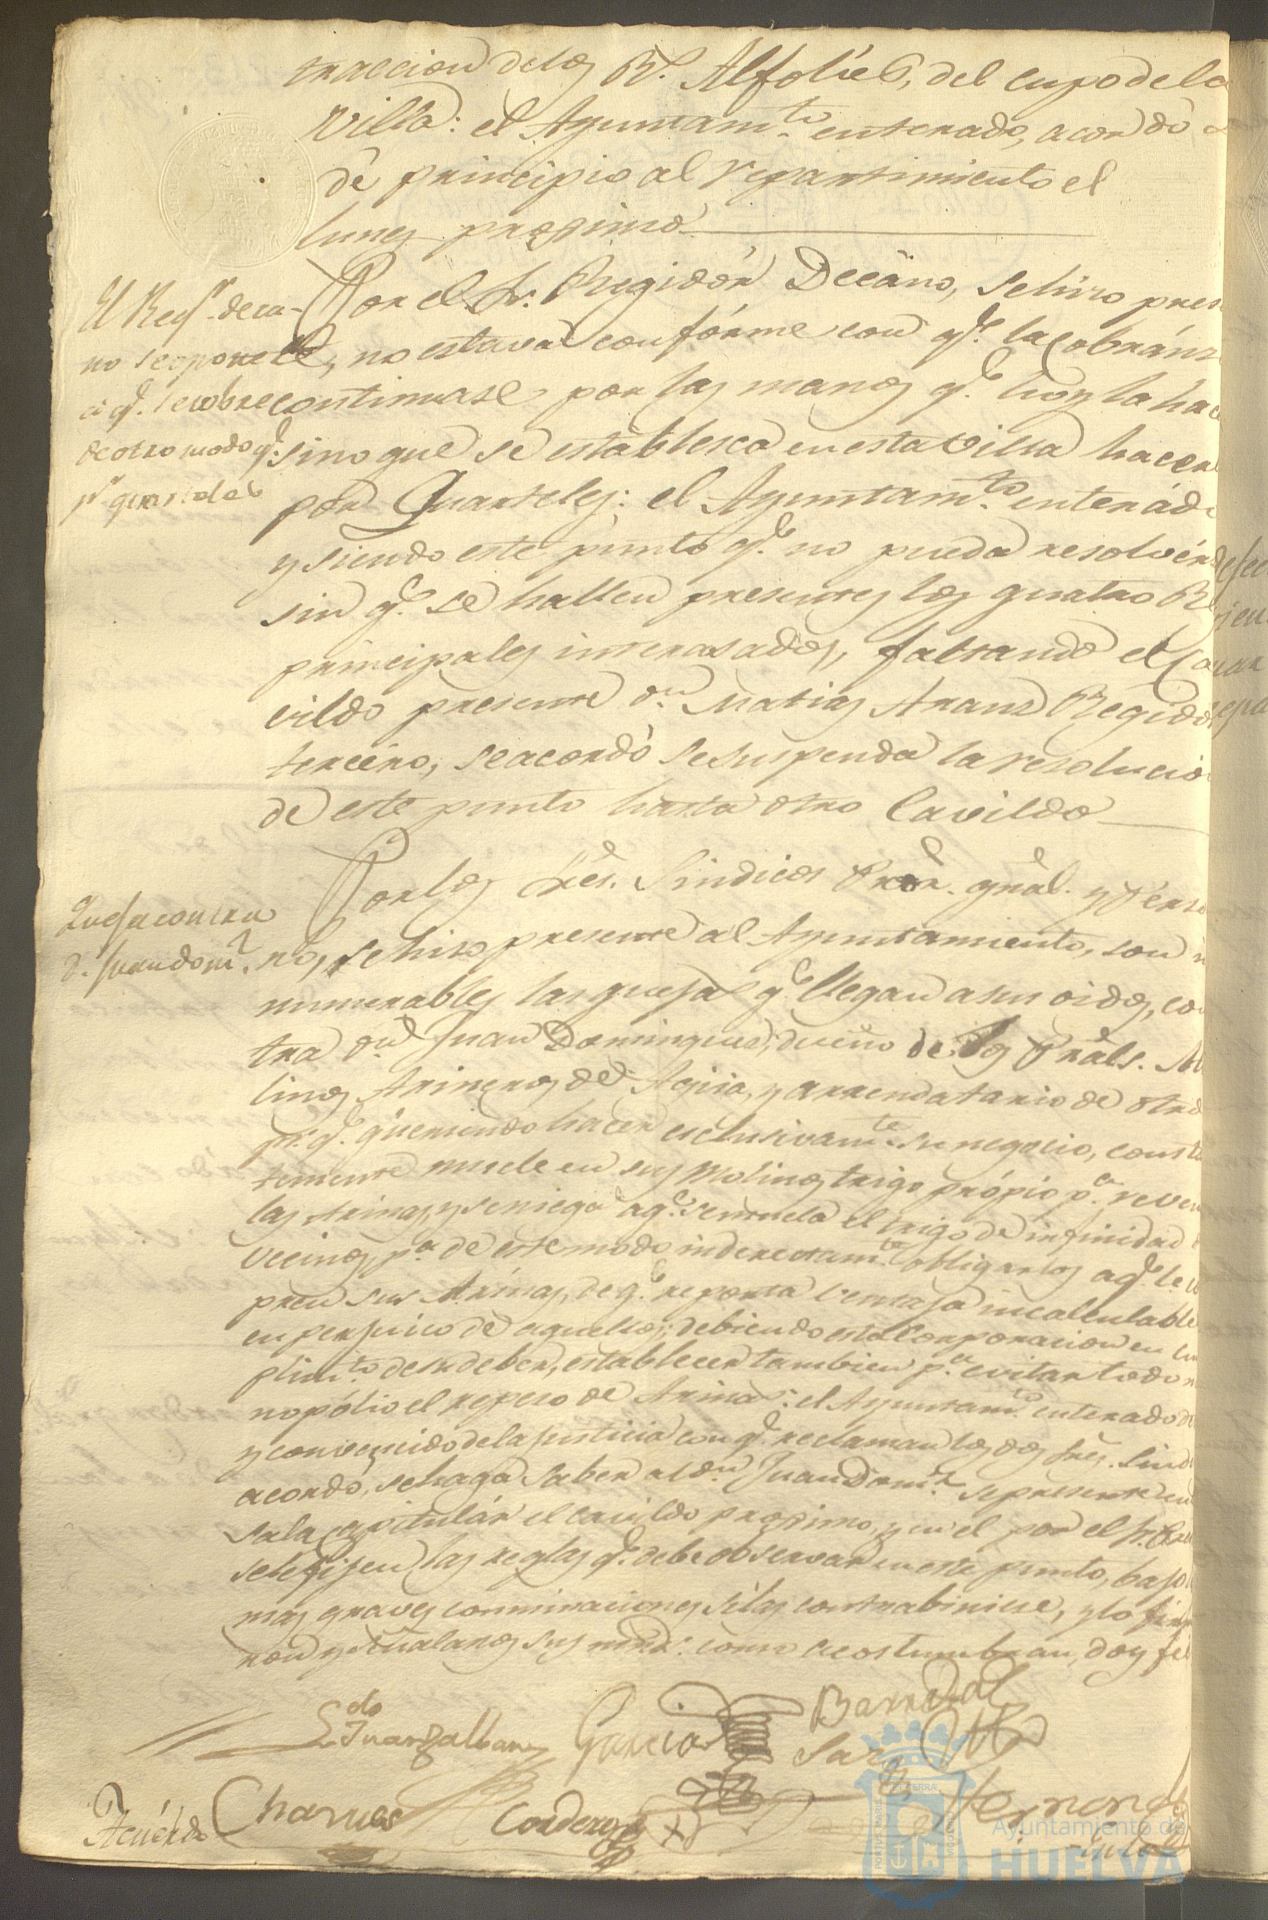 traccion delos Rs. Alfolíes, del cupo de la
Villa: el Ayuntamto. enterado, acordó
dé principio al repartimiento el
lunes proximo
El Regor. deca-
no se opone
á qe. se cobre
de otro modo qe.
pr. quarteles
Por el Sr. Regidór Decáno, se hizo pres
te, no estava confórme con qe. la cobránz
continuase por las manos qe. hoy la hac
sino que se establesca en esta villa hacer
por Quarteles: el Ayuntamto. enterád
y siendo este púnto qe. no pueda resolvér
sin qe. se hallen presentes los quatro R
principales interasados, faltando el Ca
vildo presente Dn. Matias Aranz Regidor
tercéro, se acordó se suspenda la resolucio
de este punto hasta otro Cavildo
Queja contra
D. Juan Domz.
Por los Sres. Sindicos Pror. gral. y Perso
no, se hiso presente al Ayuntamiento, son in
numerables las quejas qe. llegan a sus oidos, con
tra Dn. Juan Dominguez, dueño de los Prals. Mo
linos Arineros de Agua, y arrendatario de otro
pr. qe. queriendo hacer esclusivamte. su negocio, consta
temente muele en sus Molinos trigo própio pa. reven
las Arinas, y se niega a qe. se muela el trigo de infinidad
Vecinos, pa. de este modo inderectamte. obligarlos a qe. le co
pren sus Arinas, de qe. reporta ventaja incalculable
en perjuicio de aquellos; debiendo esta Corporacion en cum
plimto. de su deber, establecer tambien pa. evitar todo mo
nopólio el repeso de Arinas: el Ayuntamto. enterado de
y convencido de la justicia con qe. reclaman los dos Sres. Sindi
acordó, se haga saber al Dn. Juan Domz. se presente en
Sala capitulár el cavildo proximo, y en él por el Sr. Pres
se le fijen las reglas qe. debe observar en este punto, bajo l
mas graves conminaciones si las contrabiniese, y lo firm
ron y señalaron sus mrds. como acostumbran, doy fé
Ldo. Juarzalbarz
Garcia
Barredal
Charnes
Cordero
Hernand
Acuérdo
Ayuntamiento de
HUELVA